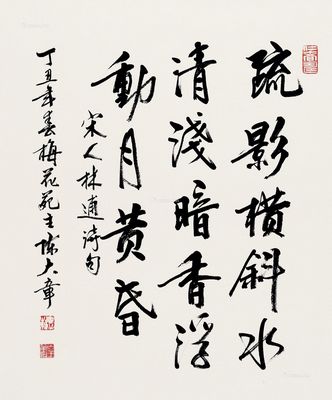 疏影橫斜水
清淺暗香浮
動月黄昏
宋人林逋詩句
丁丑年春梅花苑主陈大章